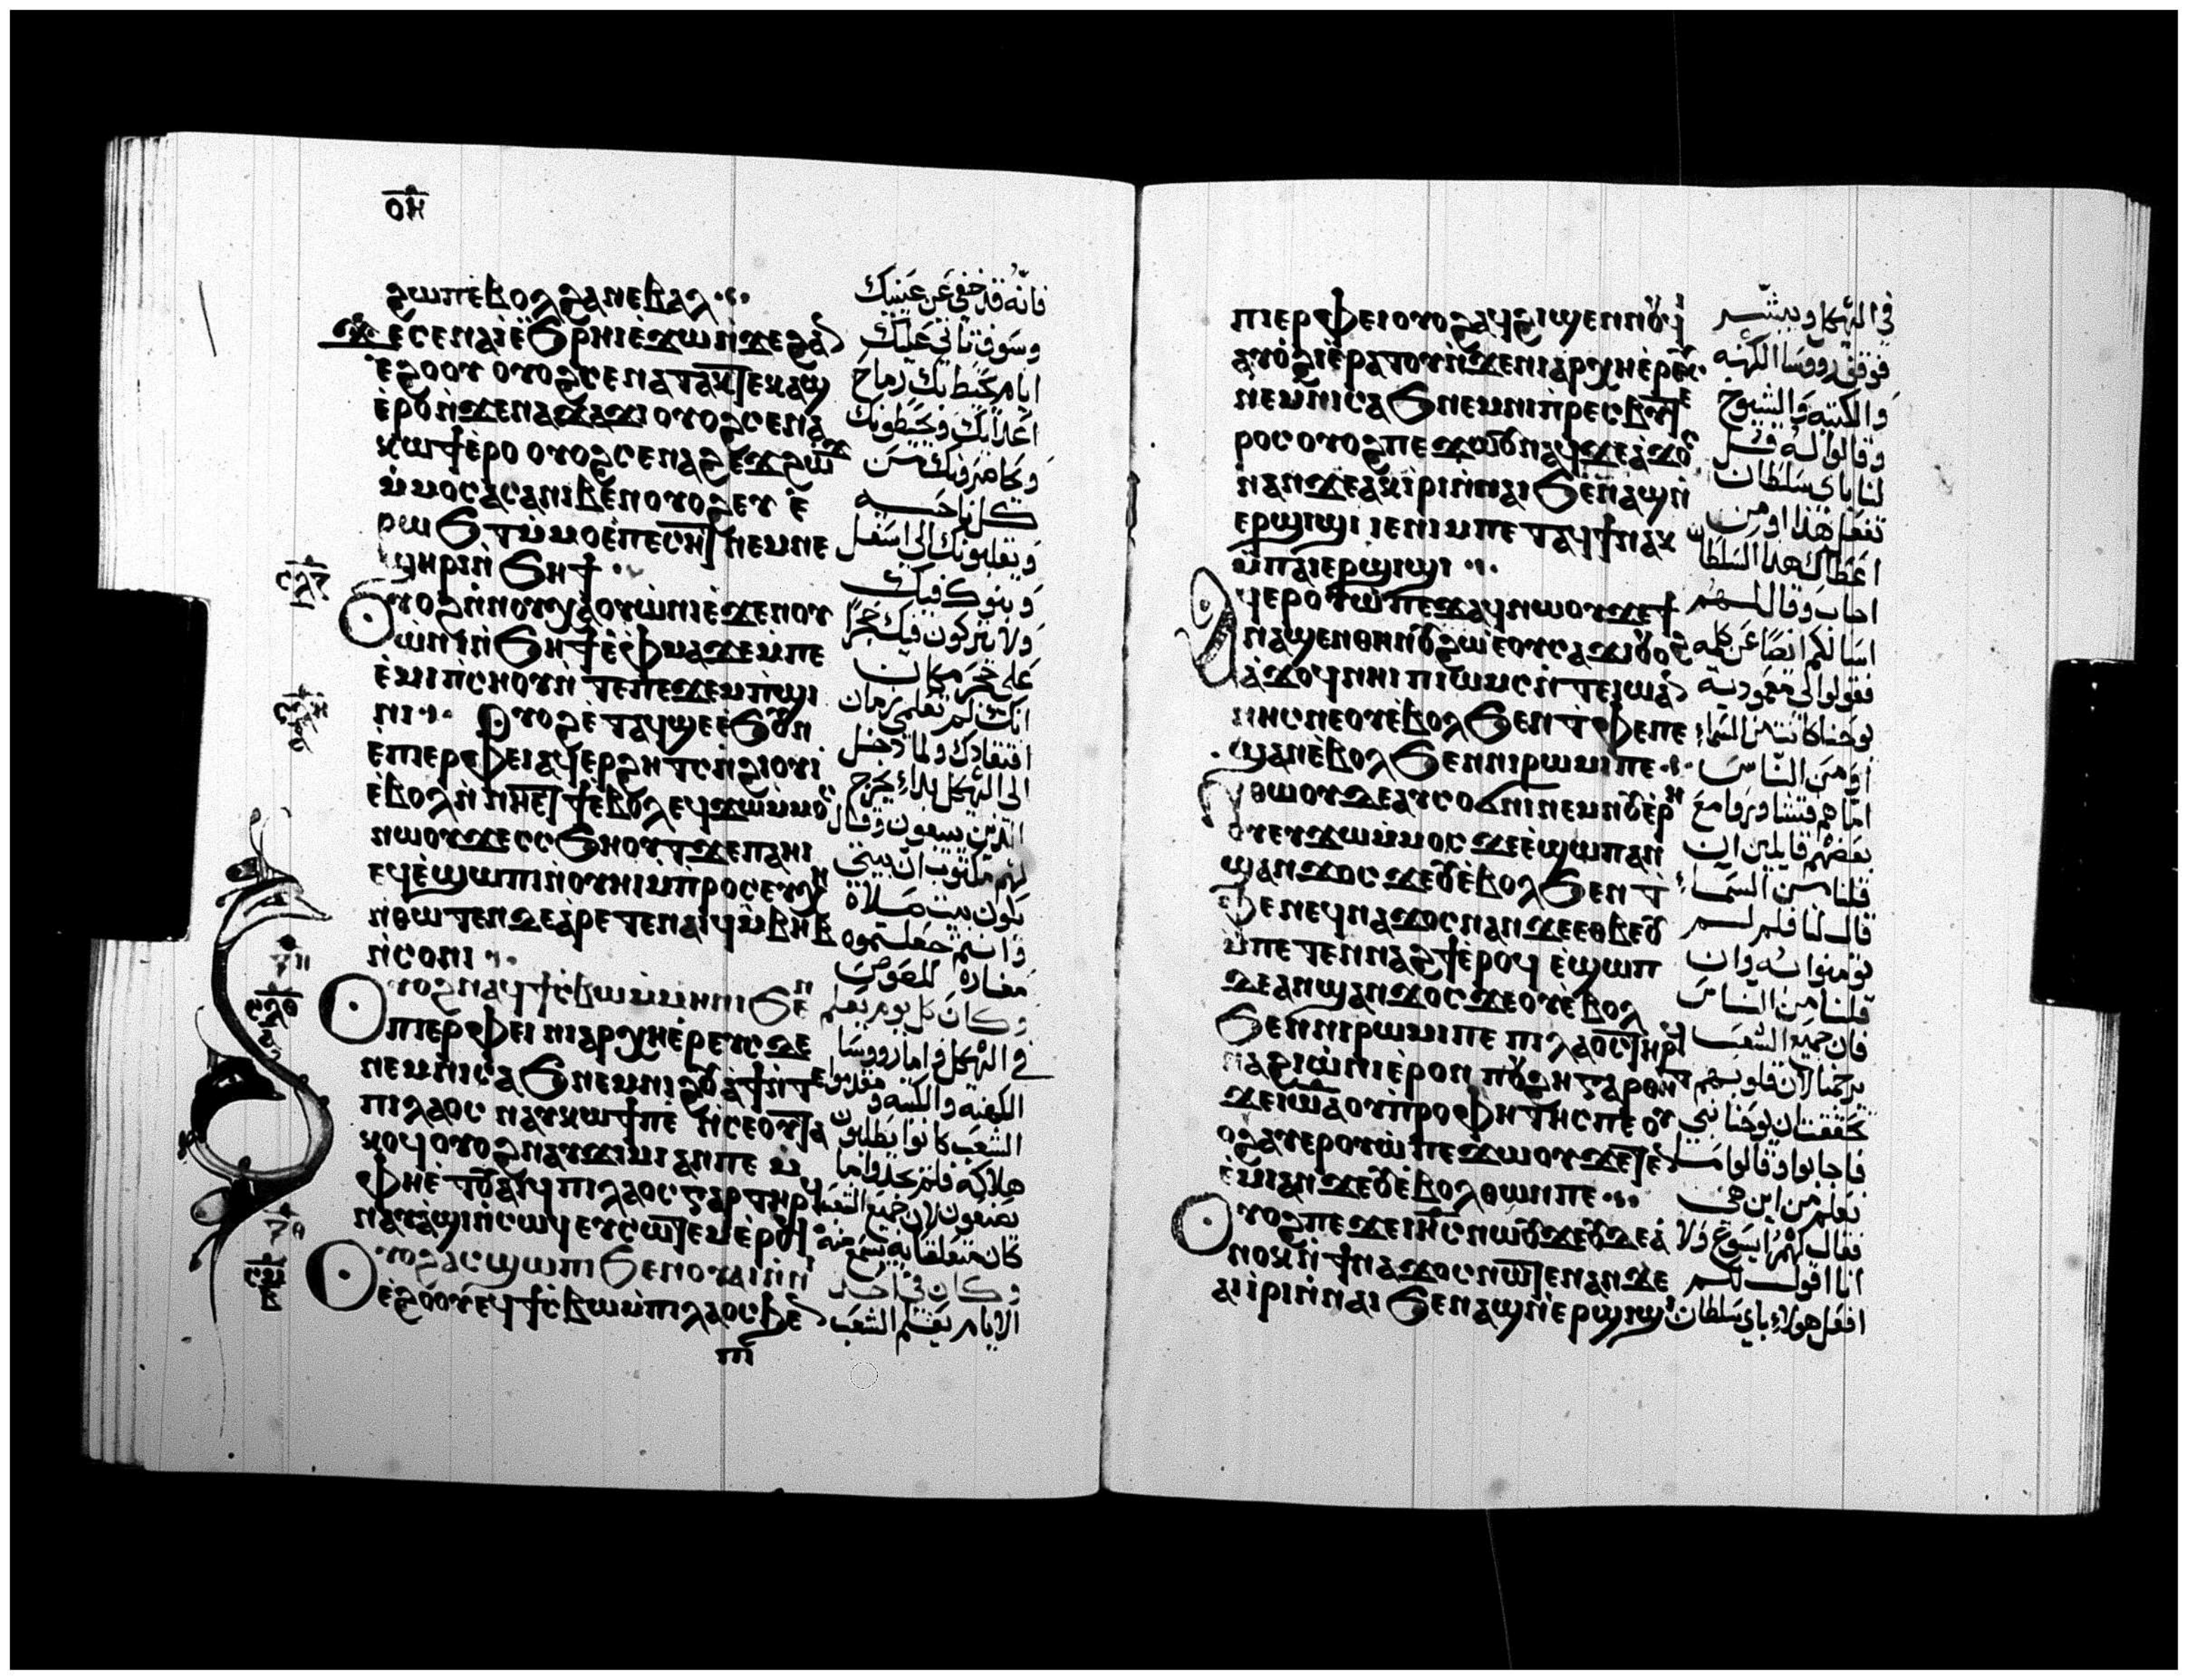 ⲟⲏ
ϩⲱⲡ ⲉ̀ⲃⲟⲗ ϩⲁ ⲛⲉⲃⲁⲗ
ϫⲉ ⲥⲉⲛⲁⲓ̀ ⲉ̀ϧⲣⲏⲓ ⲉ̀ϫⲱ ⲛ̀ϫⲉ ϩⲁⲛ
ⲉ̀ϩⲟⲟⲩ ⲟⲩⲟϩ ⲥⲉⲛⲁⲧⲁⲕⲧⲉ ⲕⲁϣ
ⲉ̀ⲣⲟ ⲛ̀ϫⲉ ⲛⲁϫⲁϫⲓ ⲟⲩⲟϩ ⲥⲉⲛⲁ
ⲕⲱϯ ⲉ̀ⲣⲟ ⲟⲩⲟϩ ⲥⲉⲛⲁϩⲉϫϩⲱϫⲓ
ⲙ̀ⲙⲟ ⲥⲁⲥⲁ ⲛⲓⲃⲉⲛ ⲟⲩⲟϩ ⲉⲩⲉ̀
ⲣⲱϧⲧ ⲙ̀ⲙⲟ ⲉ̀ⲡⲉⲥⲏⲧ ⲛⲉⲙ ⲛⲉ
ϣⲏⲣⲓ ⲛ̀ϧⲏϯ
ⲟⲩⲟϩ ⲛ̀ⲛⲟⲩⲭⲁ ⲟⲩⲱ̀ⲛⲓ ⲉ̀ϫⲉⲛ ⲟⲩ
ⲱ̀ⲛⲓ ⲛ̀ϧⲏϯ ⲉ̀ⲫⲙⲁ ϫⲉ ⲙ̀ⲡⲉ
ⲉ̀ⲙⲓ ⲡ̀ⲥⲏⲟⲩ ⲛ̀ⲧⲉ ⲡⲉϫⲉⲙⲡ̀ϣⲓ
ⲛⲓ ⲟⲩⲟϩ ⲉ̀ⲧⲁϥϣⲉ ⲉ̀ϧⲟⲩⲛ
ⲉ̀ⲡⲓⲉⲣⲫⲉⲓ ⲁϥⲉⲣϩⲏⲧⲥ ⲛ̀ϩⲓⲟⲩⲓ
ⲉ̀ⲃⲟⲗ ⲛ̀ⲛⲏⲉⲧϯ ⲉ̀ⲃⲟⲗ ⲉϥϫⲱ ⲙ̀ⲙⲟⲥ
ⲛⲱⲟⲩ ϫⲉ ⲥⲥϧⲏⲟⲩⲧ ϫⲉ ⲡⲁⲏⲓ
ⲉϥⲉ̀ϣⲱⲡⲓ ⲛ̀ⲟⲩⲏⲓ ⲙ̀ⲡⲣⲟⲥⲉⲩⲭⲏ
ⲛ̀ⲑⲱⲧⲉⲛ ⲇⲉ ⲁ̀ⲣⲉⲧⲉⲛⲁⲓϥ ⲙ̀ⲃⲏⲃ
ⲛ̀ⲥⲟⲛⲓ
ⲟⲩⲟϩ ⲛⲁϥϯⲥ̀ⲃⲱ ⲙ̀ⲙⲏⲛⲓ ϧⲉⲛ
ⲡⲓⲉⲣⲫⲉⲓ ⲛⲓⲁⲣⲭⲏⲉ̀ⲣⲉⲩⲥ ⲇⲉ
ⲛⲉⲙ ⲛⲓⲥⲁϧ ⲛⲉⲙ ⲛⲓϩⲟⲩⲁϯ ⲛ̀ⲧⲉ
ⲡⲓⲗⲁⲟⲥ ⲛⲁⲩⲕⲱϯ ⲡⲉ ⲛ̀ⲥⲉⲟⲩ ⲧⲁ
ⲕⲟϥ ⲟⲩⲟϩ ⲛⲁⲩϫⲓⲙⲓ ⲁⲛ ⲡⲉ ⲙ̀
ⲫⲏⲉ̀ⲧⲟⲩⲁⲓϥ ⲡⲓⲗⲁⲟⲥ ⲅⲁⲣ ⲧⲏⲣϥ
ⲛⲁⲩⲁ̀ϣⲓ ⲛ̀ⲥⲱϥ ⲉⲩⲥⲱⲧⲉⲙ ⲉ̀ⲣⲟϥ
ⲟⲩⲟϩ ⲁⲥϣⲱⲡⲓ ϧⲉⲛ ⲟⲩⲁⲓ ⲛ̀ⲛⲓ
ⲉ̀ϩⲟⲟⲩ ⲉϥϯⲥ̀ⲃⲱ ⲙ̀ⲡⲓⲗⲁⲟⲥ ϧⲉⲛ
فانه قد خفى عن عينيك
وسوف تاتي عليك
ايام تحيط بك رماح
اعداؤك ويحيطونك
ويحاصرونك من
كل ناحيه
ويقلبونك الى اسفل
وبنوك فيك
ولا يتركون فيك حجرا
على حجر مكان
انك لم تعلمي زمان
افتقادك ولما دخل
الى الهيكل بدا يخرج
الذين يبيعون وقال
لهم مكتوب ان بيتي
يكون بيت صلاه
وانتم جعلتموه
مغاره للصوص
وكان كل يوم يعلم
في الهيكل واما رووسا
الكهنه والكتبه ومقدموا
الشعب كانوا يطلبون
هلاكه فلم يجدوا ما
يصنعون لان جميع الشعب
كان متعلقا به يسمع منه
وكان في احد
الايام يعلم الشعب
ⲡⲓⲉⲣⲫⲉⲓ ⲟⲩⲟϩ ⲁϥϩⲓϣⲉⲛⲛⲟⲩϥⲓ
ⲁⲩⲟ̀ϩⲓ ⲉ̀ⲣⲁⲧⲟⲩ ⲛ̀ϫⲉ ⲛⲓⲁⲣⲭⲏⲉ̀ⲣⲉⲩⲥ
ⲛⲉⲙ ⲛⲓⲥⲁϧ ⲛⲉⲙ ⲛⲓⲡ̀ⲣⲉⲥⲃⲩⲧⲉ
ⲣⲟⲥ ⲟⲩⲟϩ ⲡⲉϫⲱⲟⲩ ⲛⲁϥ ϫⲉ ⲁ̀ϫⲟⲥ
ⲛⲁⲛ ϫⲉ ⲁⲕⲓ̀ⲣⲓ ⲛ̀ⲛⲁⲓ ϧⲉⲛ ⲁϣ ⲛ̀
ⲉⲣϣⲓϣⲓ ⲓⲉ ⲛⲓⲙ ⲡⲉⲧⲁϥϯ ⲛⲁⲕ
ⲙ̀ⲡⲁⲓⲉⲣϣⲓϣⲓ
ⲁϥⲉⲣⲟⲩⲱ̀ ⲡⲉϫⲁϥ ⲛⲱⲟⲩ ϫⲉ ϯ
ⲛⲁϣⲉⲛ ⲑⲏⲛⲟⲩ ϩⲱ ⲉ̀ⲟⲩⲥⲁϫⲓ ⲟⲩⲟϩ
ⲁ̀ϫⲟϥ ⲛⲏⲓ ⲡⲓⲱⲙⲥ ⲛ̀ⲧⲉ ⲓⲱⲁⲛ
ⲛⲏⲥ ⲛⲉ ⲟⲩⲉ̀ⲃⲟⲗ ϧⲉⲛ ⲧ̀ⲫⲉ ⲡⲉ
ϣⲁⲛ ⲉ̀ⲃⲟⲗ ϧⲉⲛ ⲛⲓⲣⲱⲙⲓ ⲡⲉ
ⲛ̀ⲑⲱⲟⲩ ⲇⲉ ⲁⲩⲥⲟϭⲛⲓ ⲛⲉⲙ ⲛⲟⲩⲉ̀ⲣⲏ
ⲟⲩ ⲉⲩϫⲱ ⲙ̀ⲙⲟⲥ ϫⲉ ⲉ̀ϣⲱⲡ ⲁⲛ
ϣⲁⲛϫⲟⲥ ϫⲉ ⲟⲩⲉ̀ⲃⲟⲗ ϧⲉⲛ ⲧ̀
ⲫⲉ ⲛⲉ ϥⲛⲁϫⲟⲥ ⲛⲁⲛ ϫⲉ ⲉⲑⲃⲉⲟⲩ
ⲙ̀ⲡⲉⲧⲉⲛⲛⲁϩϯ ⲉ̀ⲣⲟϥ ⲉ̀ϣⲱⲡ
ⲇⲉ ⲁⲛϣⲁⲛϫⲟⲥ ϫⲉ ⲟⲩⲉ̀ⲃⲟⲗ
ϧⲉⲛ ⲛⲓⲣⲱⲙⲓ ⲡⲉ ⲡⲓⲗⲁⲟⲥ ⲧⲏⲣϥ
ⲛⲁϩⲓⲱ̀ⲛⲓ ⲉ̀ⲣⲟⲛ ⲡⲟⲩϩⲏⲧ ⲅⲁⲣ ⲑⲏⲧ
ϫⲉ ⲓⲱⲁ ⲟⲩⲡ̀ⲣⲟⲫⲏⲧⲏⲥ ⲡⲉ ⲟⲩ
ⲟϩ ⲁⲩⲉⲣⲟⲩⲱ̀ ⲡⲉϫⲱⲟⲩ ϫⲉ ⲧⲉⲛ
ⲉ̀ⲙⲓ ⲁⲛ ϫⲉ ⲟⲩⲉ̀ⲃⲟⲗ ⲑⲱⲛ ⲡⲉ
ⲟⲩⲟϩ ⲡⲉϫⲉ ⲓⲏⲥ ⲛⲱⲟⲩ ϫⲉ ⲟⲩⲇⲉ ⲁ̀
ⲛⲟⲕ ⲛ̀ϯⲛⲁϫⲟⲥ ⲛⲱⲧⲉⲛ ⲁⲛ ϫⲉ
ⲁⲓⲓ̀ⲣⲓ ⲛ̀ⲛⲁⲓ ϧⲉⲛ ⲁϣ ⲛ̀ⲉⲣϣⲓϣⲓ
في الهيكل ويبشر
فوقف رووسا الكهنه
والكتبه والشيوخ
وقالوا له قل
لنا باي سلطان
تفعل هذا او من
اعطاك هذا السلطان
اجاب وقال لهم
اسالكم ايضا عن كلمه
فقولوا لي معموديه
يوحنا كانت من السما
او من الناس
اما هم فتشاوروا مع
بعضهم قايلين ان
قلنا من السما
قال لنا فلم لم
تومنوا به وان
قلنا من الناس
فان جميع الشعب
يرجمنا لان قلوبهم
تحققت ان يوحنا نبي
فاجابوا وقالوا ما
نعلم من اين هي
فقال لهم يسوع ولا
انا اقول لكم
افعل هولاء باي سلطان